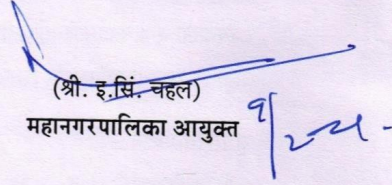 (श्री. इ.सिं. चहल)
महानगरपालिका आयुक्त